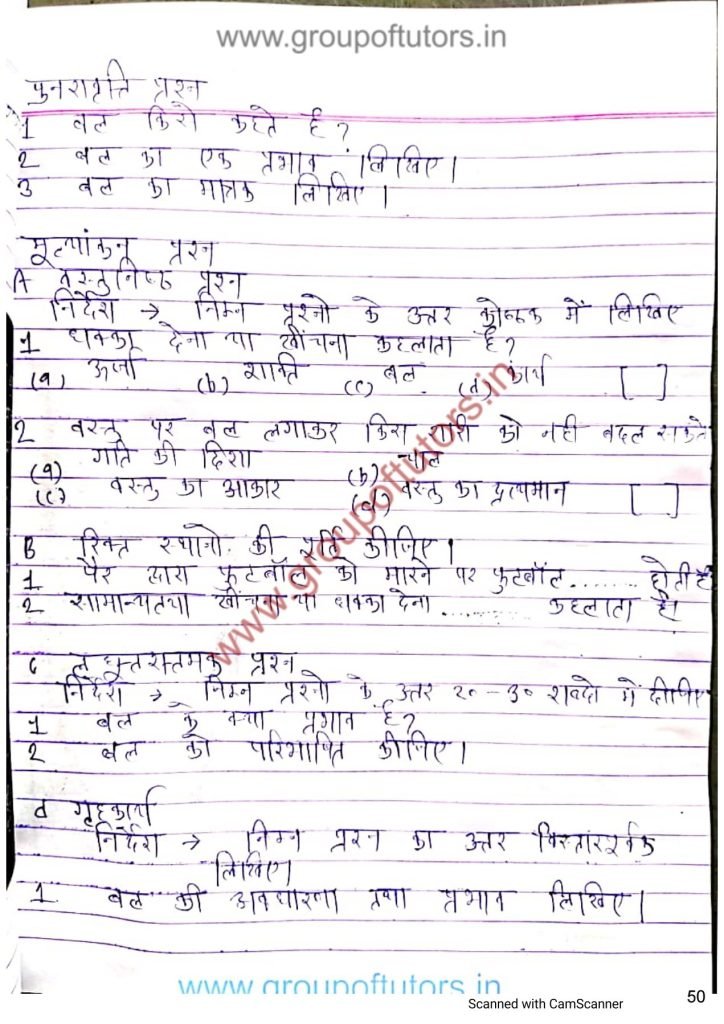 www.groupoftutors.in
पुनरावृत्ति प्रश्न
1 बल किसे कहते है?
2 बल का एक प्रभाव लिखिए।
3 बल का मात्रक लिखिए।
मूल्यांकन प्रश्न
A वस्तुनिष्ठ प्रश्न
निर्देश → निम्न प्रश्नो के उत्तर कोष्ठक में लिखिए
1 धक्का देना या खींचना कहलाता है?
(a) ऊर्जा (b) शक्ति (c) बल (d) कार्य [ ]
2 वस्तु पर बल लगाकर किस राशी को नही बदल सकते
(a) गति की दिशा (b) चाल
(c) वस्तु का आकार (d) वस्तु का द्रव्यमान [ ]
B रिक्त स्थानो की पूर्ति कीजिए।
1 पैर द्वारा फुटबॉल को मारने पर फुटबॉल ........ होती है
2 सामान्यतया खींचना या धक्का देना .......... कहलाता है।
www.groupoftutors.in
C लघुत्तरात्मक प्रश्न
निर्देश → निम्न प्रश्नो के उत्तर २० - ३० शब्दो में दीजिए
1 बल के क्या प्रभाव है?
2 बल को परिभाषित कीजिए।
d गृहकार्य
निर्देश → निम्न प्रश्न का उत्तर विस्तारपूर्वक
लिखिए।
1 बल की अवधारणा तथा प्रभाव लिखिए।
www.groupoftutors.in
Scanned with CamScanner
50